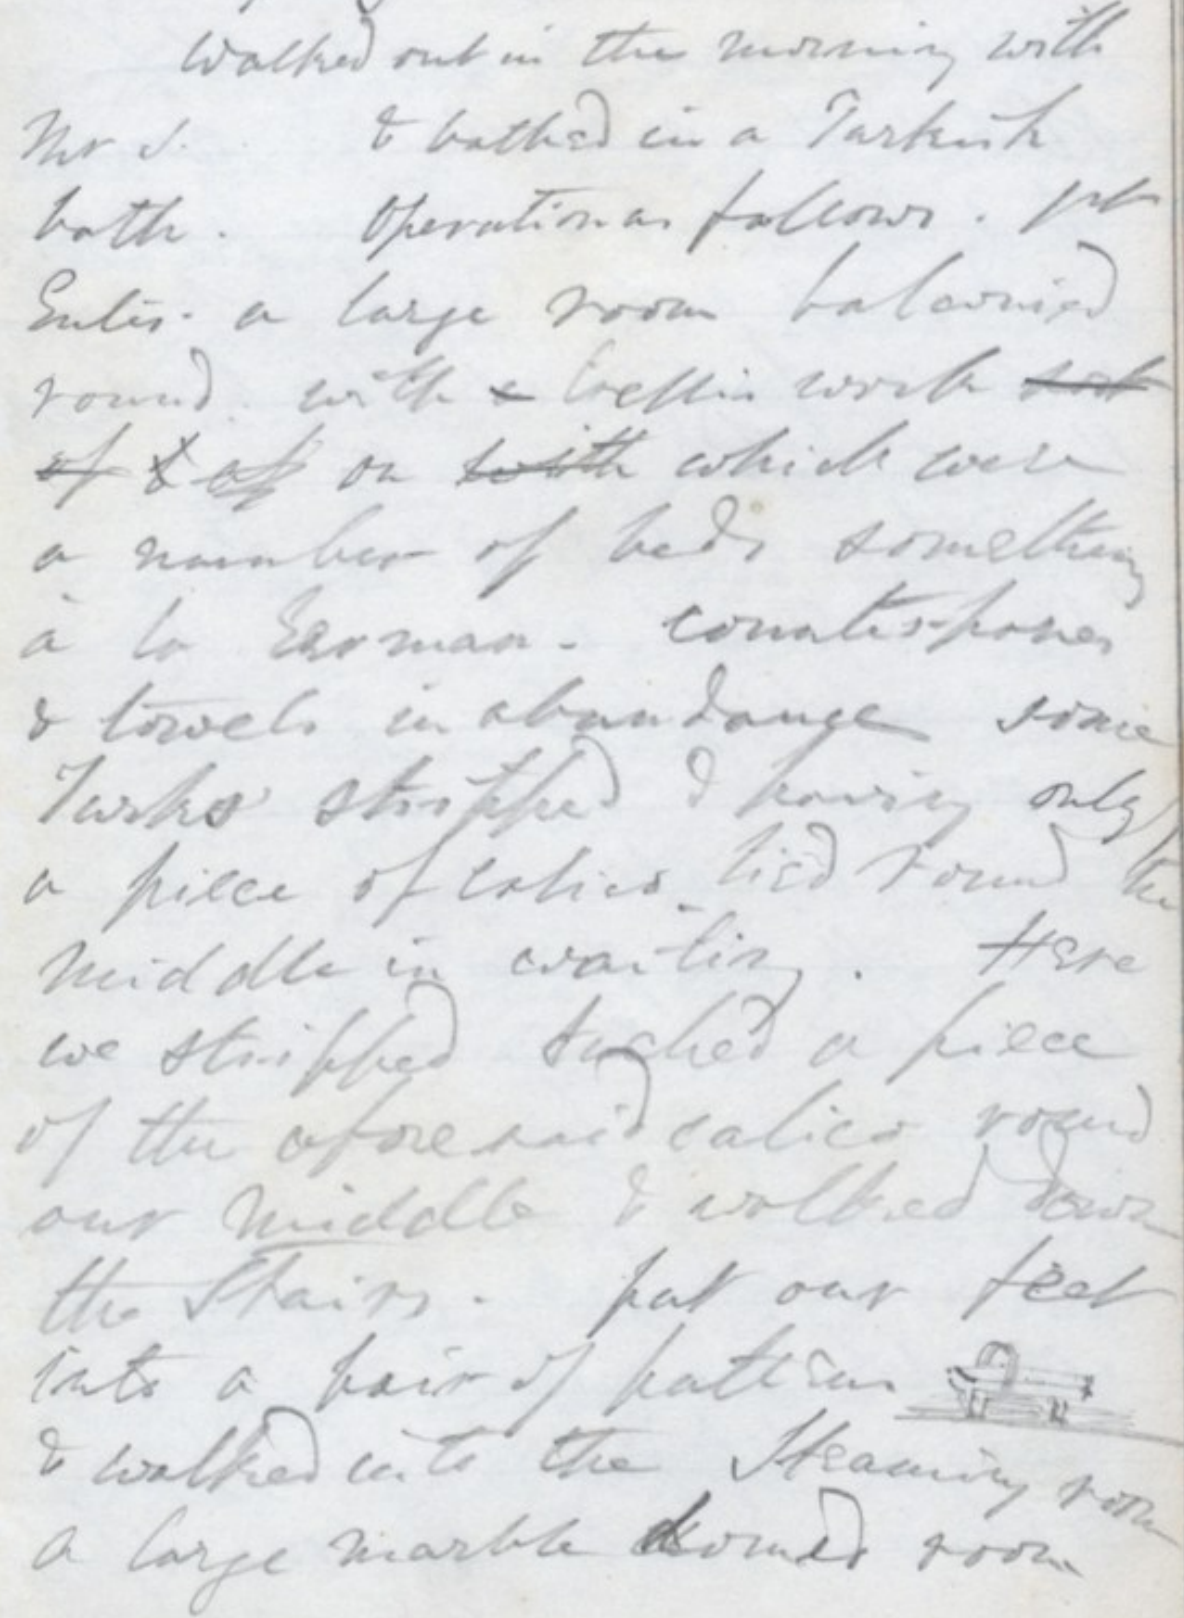 Walked out in the morning with
Mr S. & bathed in a Turkish
bath. Operation as follows. 1st
Enter a large room balconied
round with a trellis work
of & of on with which were
a number of beds something
à la German. counterpanes
& towels in abundance some
Turks stripped & having only
a piece of calico tied round the
middle in waiting. Here
we stripped tucked a piece
of the aforesaid calico round
our middle & walked down
the Stairs. put our feet
into a pair of pattens
& walked into the Steaming room
a large marble domed room